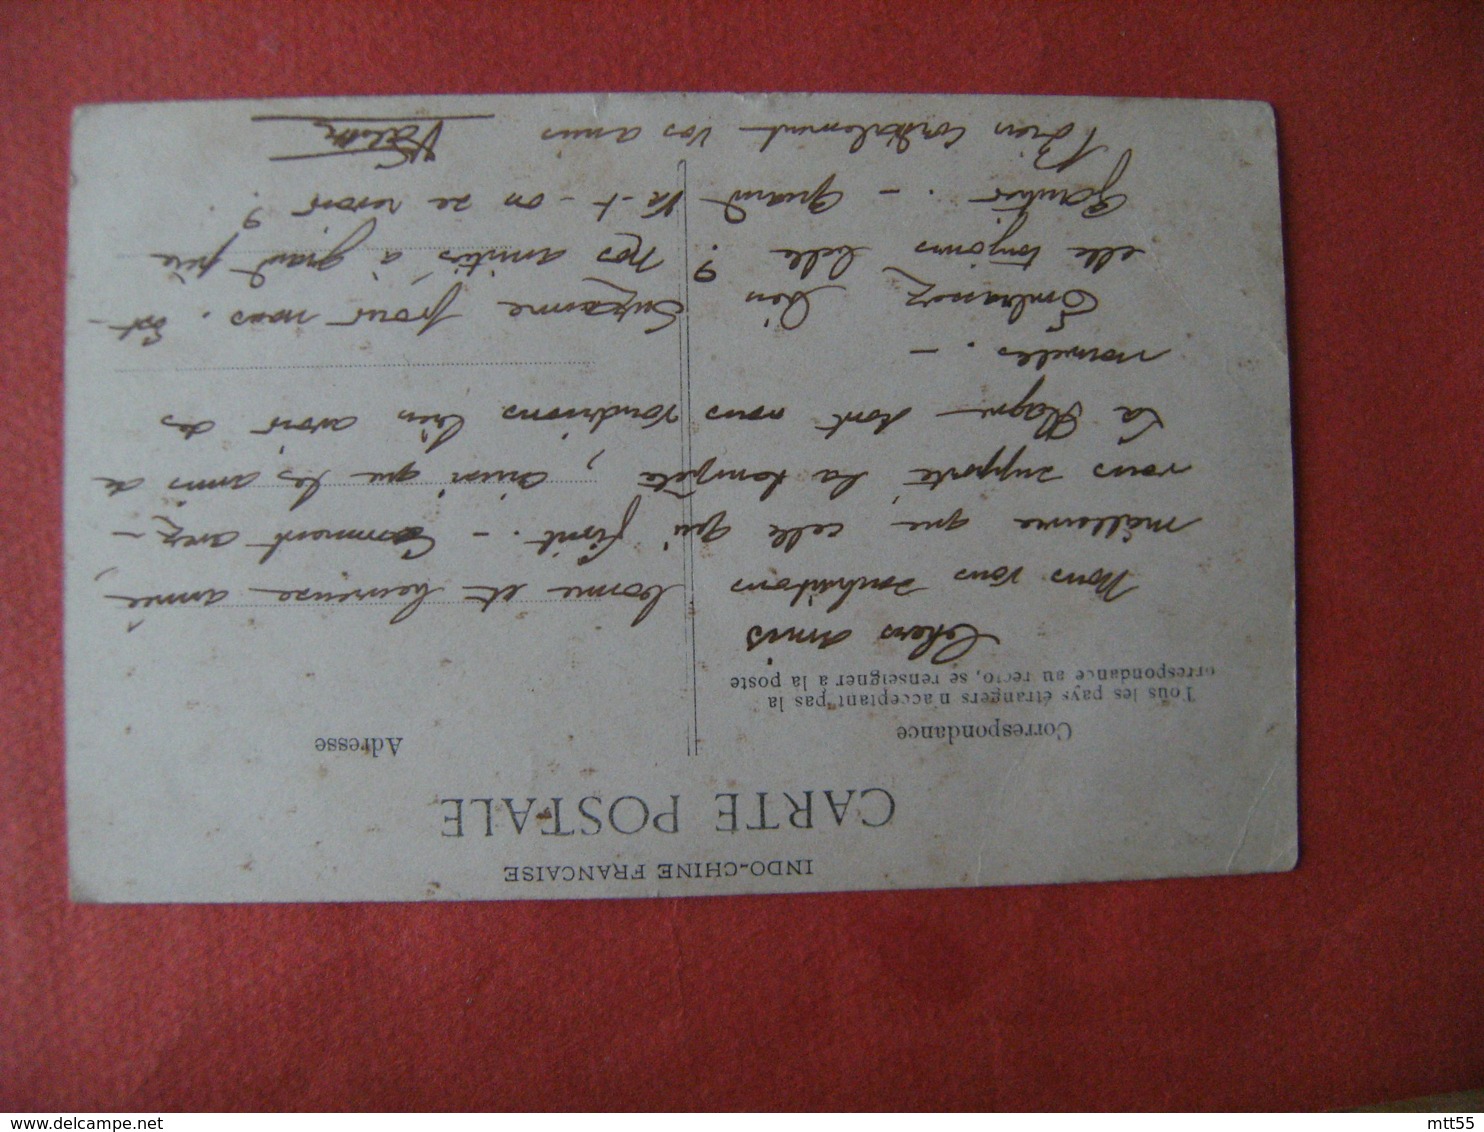 INDO-CHINE FRANCAISE
CARTE POSTALE
Correspondance
Adresse
Tous les pays étrangers n'acceptant pas la
correspondance au recto, se renseigner a la poste
Chers amis
Nous vous souhaitons bonne et heureuse année,
meilleure que celle qui finit. - Comment avez-
vous supporté la tempête, ainsi que les amis de
La Plagne dont nous voudrions bien avoir des
nouvelles. -
Embrassez bien Suzanne pour nous. Est-
elle toujours belle ? Nos amitiés à grand père
Gautier. - Quand va-t-on se revoir ?
Bien cordialement Vos amis
mtt55